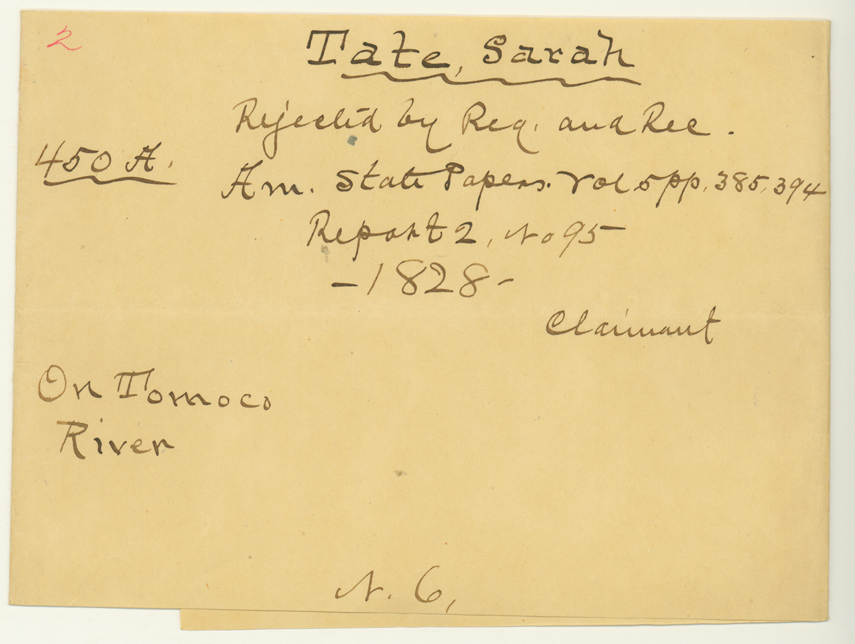 2
Tate, Sarah
Rejected by Reg. and Rec.
450 A.
Am. State Papers. Vol 5 pp. 385, 394
Report 2, No 95
-1828-
Claimant
On Tomoco
River
N. 6,